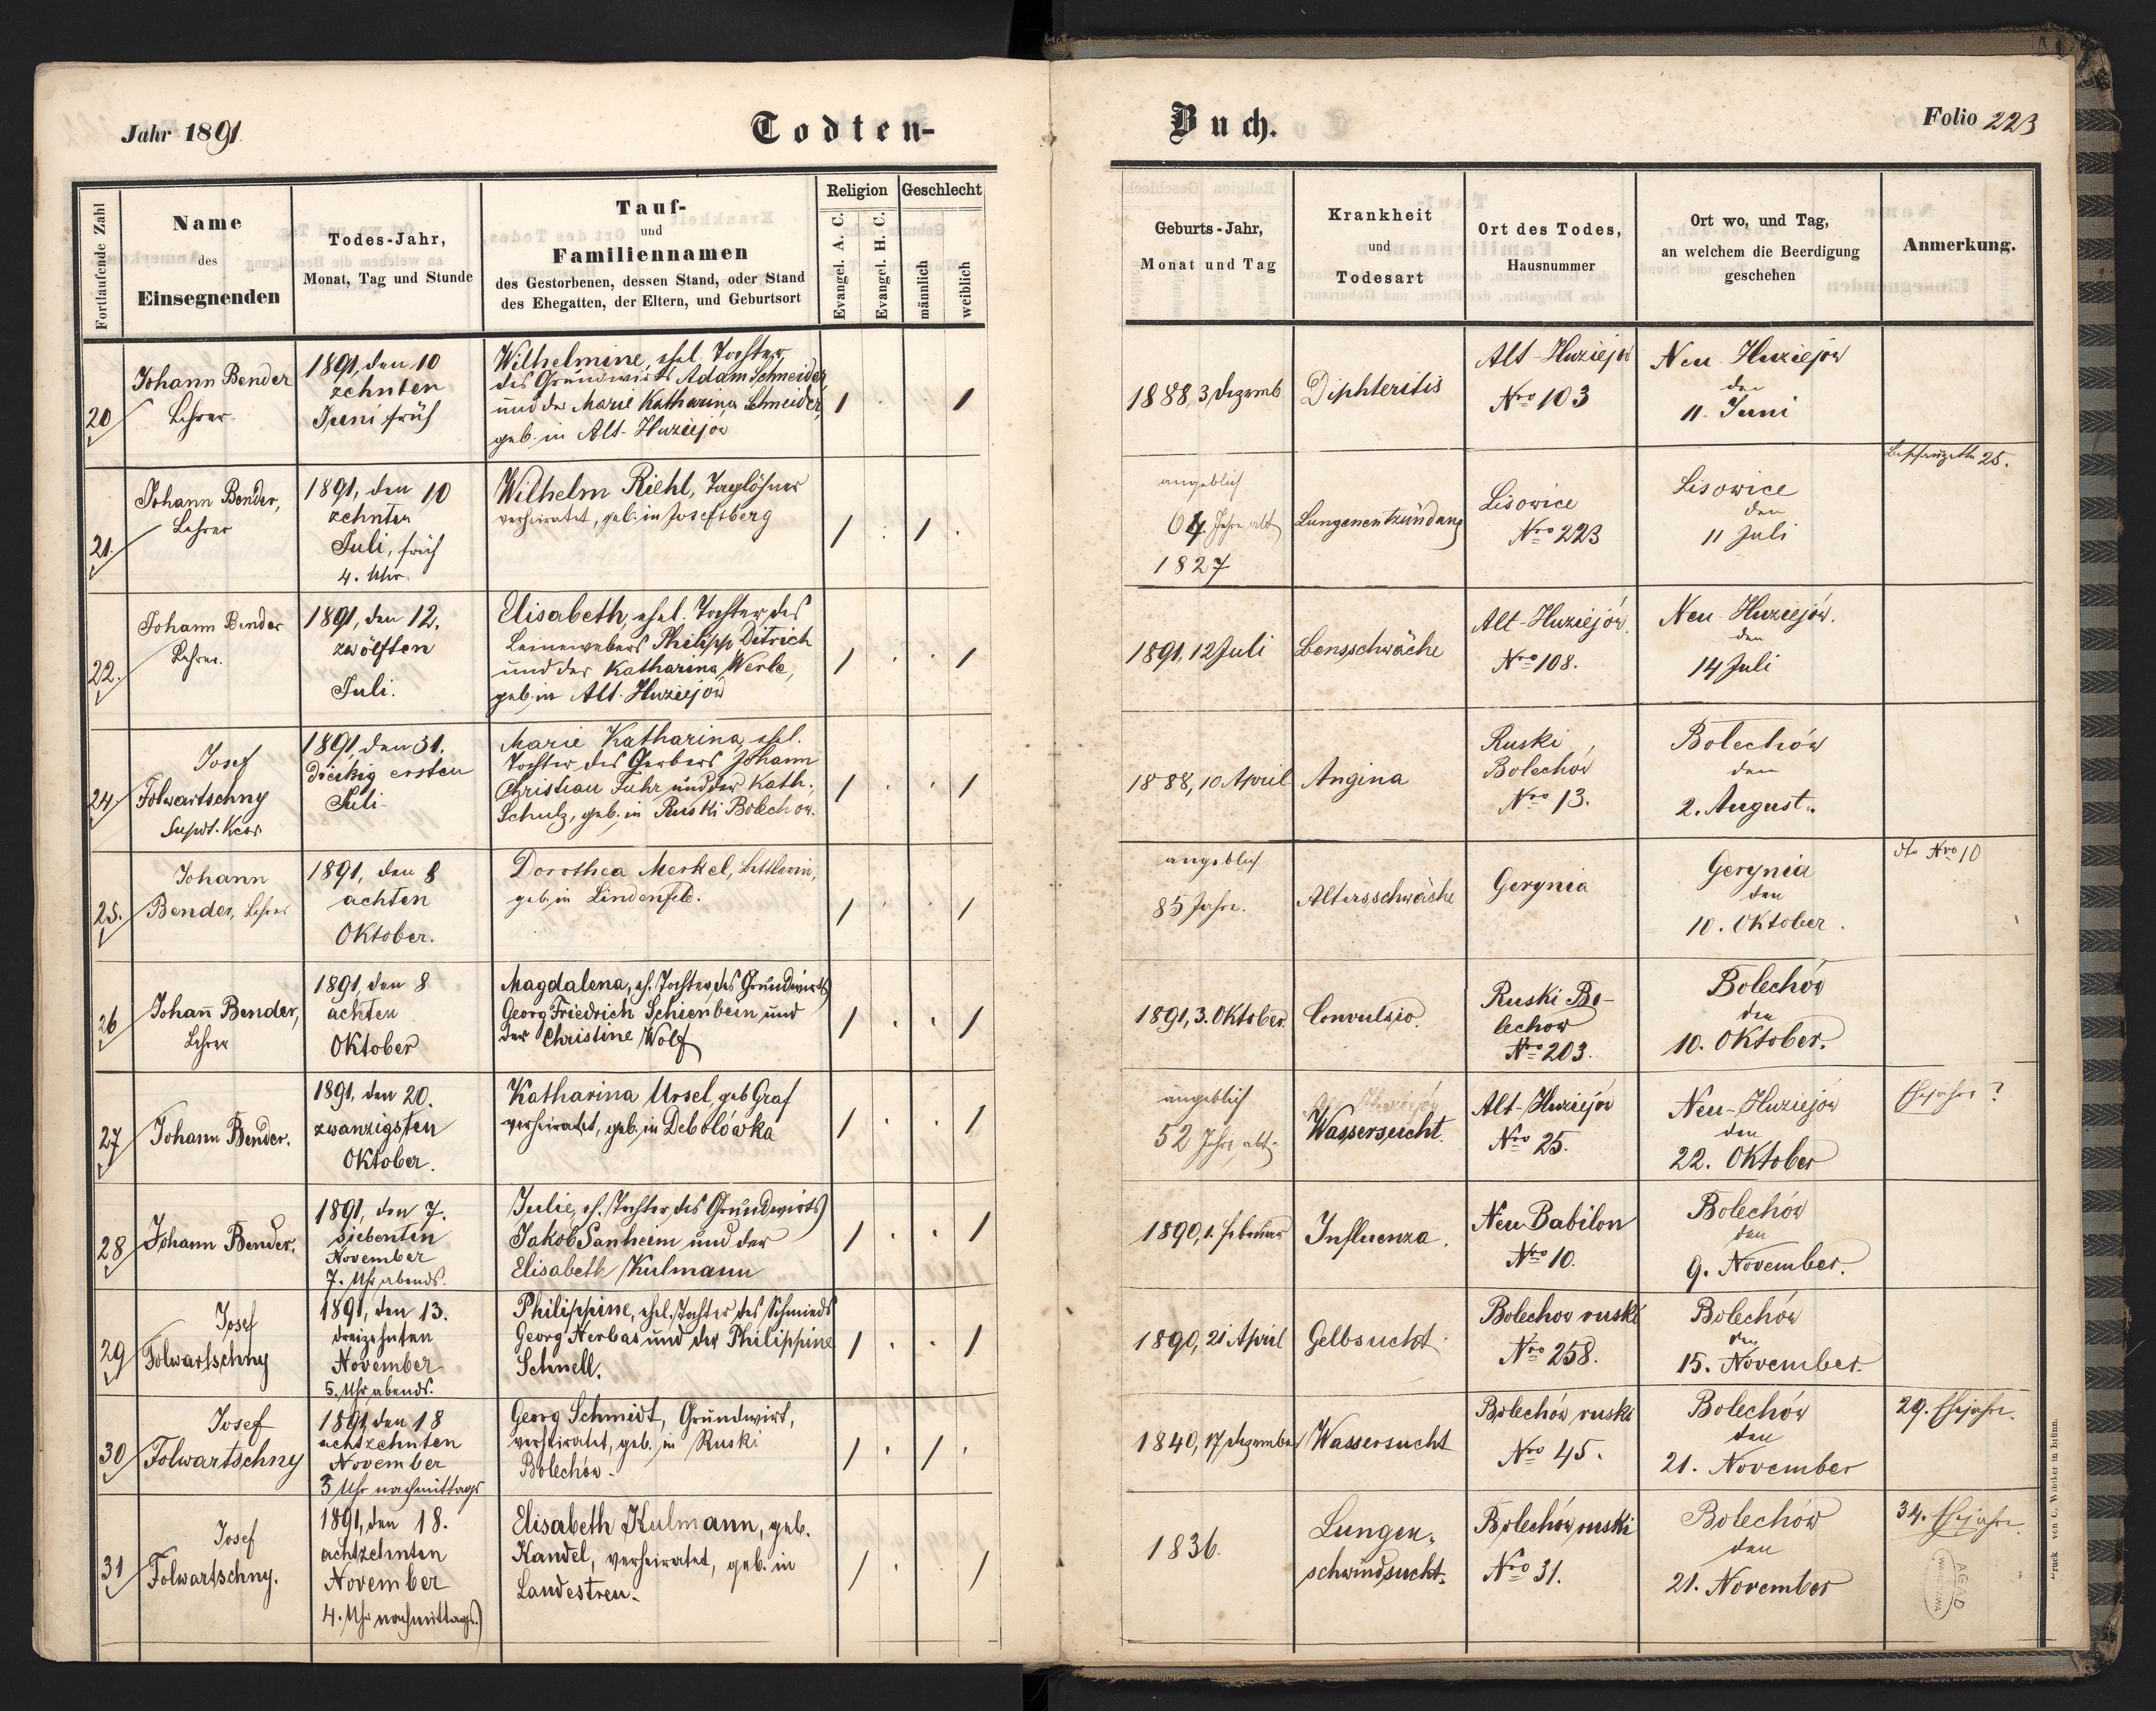 Jahr 1891.
Todten-
Fortlaufende Zahl
Name
des
Einsegnenden
Todes-Jahr,
Monat, Tag und Stunde
Tauf-
und
Familiennamen
des Gestorbenen, dessen Stand, oder Stand
des Ehegatten, der Eltern, und Geburtsort
Religion
Geschlecht
Evangel. A. C.
Evangel. H. C.
männlich
weiblich
20
Johann Bender
Lehrer.
1891, den 10
zehnten
Juni früh
Wilhelmine, ehel. Tochter
des Grundwirts Adam Schneider,
und der Marie Katharina Schneider,
geb. in Alt-Huziejów
21.
Johann Bender,
Lehrer
1891, den 10
zehnten
Juli, früh
4. Uhr.
Wilhelm Riehl, Taglöhner
verheiratet, geb. in Josefsberg
22.
Johann Bender
Lehrer.
1891, den 12.
zwölften
Juli.
Elisabeth, ehel. Tochter des
Leinewebers Philipp Ditrich
und der Katharina Werle,
geb. in Alt. Huziejów
24
Josef
Folwartschny
1891, den 31.
Dreißig ersten
Juli-
Marie Katharina, ehel.
Tochter des Gerbers Johann
Christian Fuhr und der Kath.
Schulz, geb. in Ruski Bolechow.
25.
Johann
Bender, Lehrer
1891, den 8
achten
Oktober.
Dorothea Merkel, Bettlerin,
geb. in Lindenfeld.
26
Johan̄ Bender,
Lehrer
1891, den 8
achten
Oktober
Magdalena, eh. Tochter des Grundwirts
Georg Friedrich Schienbein und
der Christine Wolf
27
Johann Bender.
1891, den 20.
zwanzigsten
Oktober.
Katharina Ursel, geb Graf
verheiratet, geb. in Debolówka
28
Johann Bender.
1891, den 7.
siebenten
November
7. Uhr abends.
Julie, eh. Tochter des Grundwirts
Jakob Sanheim und der
Elisabeth Kulmann
29
Josef
Folwartschny
1891, den 13.
dreizehnten
November
5. Uhr abends.
Philippine, ehel. Tochter des Schmieds
Georg Herbas und der Philippine
Schnell.
30
Josef
Folwartschny
1891, den 18
achtzehnten
November
3 Uhr nachmittags
Georg Schmidt, Grundwirt,
verheiratet, geb. in Ruski
Bolechów.
31
Josef
Folwartschny.
1891, den 18.
achtzehnten
November
4. Uhr nachmittags.
Elisabeth Kulmann, geb.
Kandel, verheiratet, geb. in
Landestreu.
Buch.
Folio 223
Geburts-Jahr,
Monat und Tag
Krankheit
und
Todesart
Ort des Todes,
Hausnummer
Ort wo, und Tag,
an welchem die Beerdigung
geschehen
Anmerkung.
1888, 3 Dezemb
Diphteritis
Alt-Huziejów
Nro 103
Neu Huziejów
den
11. Juni
angeblich
64. Jahre alt
1827
Lungenentzündung
Lisowice
Nro 223
Lisowice
den
11 Juli
25.
1891, 12 Juli
Bensschwäche
Alt-Huziejów.
Nro 108.
Neu Huziejów.
den
14 Juli
1888, 10 April
Angina
Ruski
Bolechów
Nro 13.
Bolechów
den
2. August.
angeblich
85 Jahre.
Altersschwäche
Gerynia
Gerynia
den
10. Oktober.
dto Nro 10
1891, 3. Oktober.
Convulsio.
Ruski Bo-
lechow
Nro 203.
Bolechów
den
10. Oktober.
angeblich
52 Jahre alt.
Wassersucht.
Alt-Huziejów
Nro 25.
Neu-Huziejów
den
22. Oktober
Ehejahre?
1890, 1. Februar
Influenza.
Neu Babilon
Nro 10.
Bolechów
den
9. November.
1890, 21 April
Gelbsucht
Bolechow ruski
Nro 258.
Bolechów
den
15. November.
1840, 17 Dezember
Wassersucht
Bolechów ruski
Nro 45.
Bolechów
den
21. November
29. Ehejahre.
1836.
Lungen-
schwindsucht.
Bolechów ruski
Nro 31.
Bolechów
den
21. November
34. Ehejahre.
AGAD
WARSZAWA
Druck von C. Winiker in Brünn.